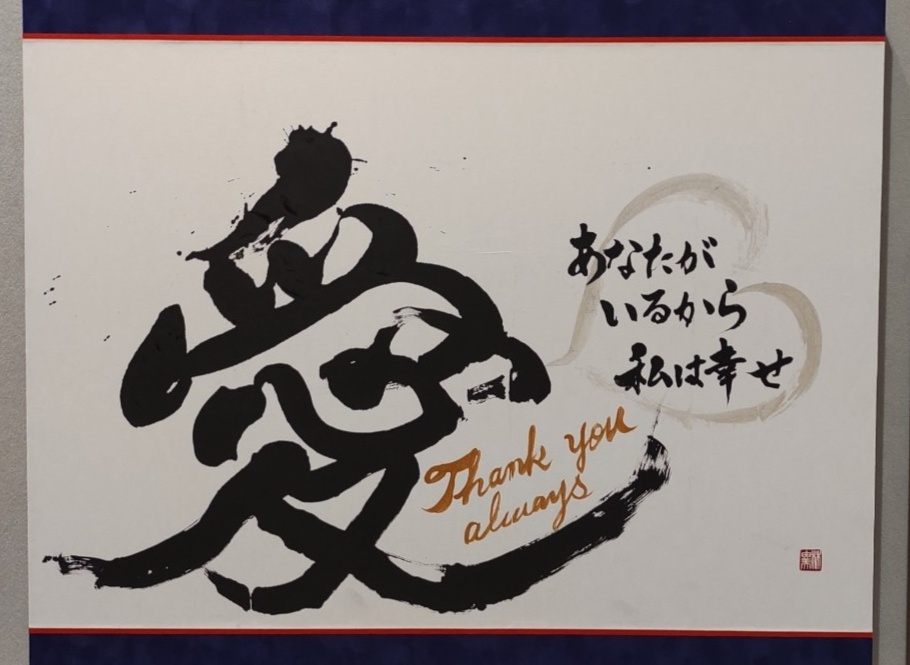 愛
あなたが
いるから
私は幸せ
Thank you
always